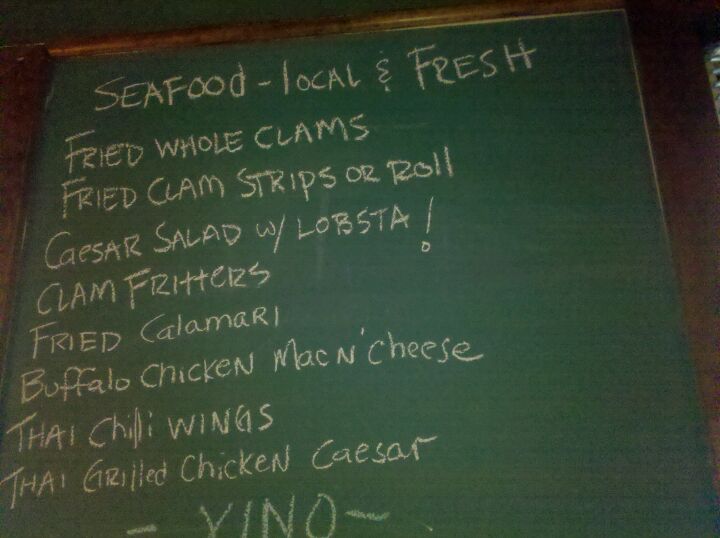 SEAFOOd - lOCAL & FRESH
FRIED WHOLE CLAMS
FRIED CLAM STRIPS OR ROll
CaeSAR SALAD W/ LOBSTA!
CLAM FRITTERS
FRIED CalamARI
Buffalo CHICKEN Mac N' Cheese
THAI Chili WINGS
THAI GRIlled Chicken Caesar
- VINO -